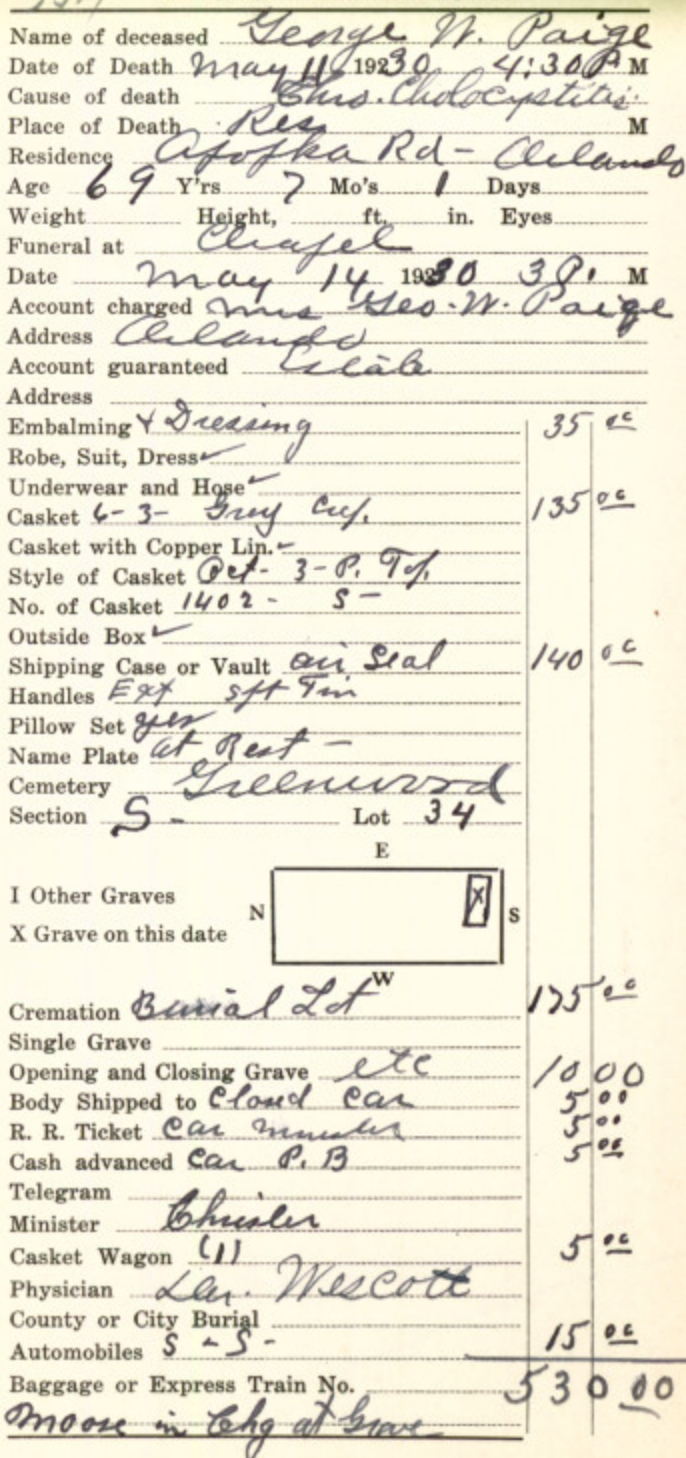 Name of deceased George W. Paige
Date of Death May 11 1930 4:30 P M
Cause of death Chro. Cholocystitis
Place of Death Res M
Residence Apopka Rd - Orlando
Age 69 Y'rs 7 Mo's 1 Days
Weight Height, ft. in. Eyes
Funeral at Chapel
Date May 14 1930 3 P. M
Account charged Mrs Geo. W. Paige
Address Orlando
Account guaranteed Estate
Address
Embalming & Dressing 35 00
Robe, Suit, Dress
Underwear and Hose
Casket 6-3- Grey Crep. 135 00
Casket with Copper Lin.
Style of Casket Oct- 3-P. Top
No. of Casket 1402 - S -
Outside Box
Shipping Case or Vault air Seal 140 00
Handles Ext
Pillow Set yes
Name Plate at Rest -
Cemetery Greenwood
Section S - Lot 34
E
I Other Graves
N X S
X Grave on this date
W
Cremation Burial Lot 175 00
Single Grave
Opening and Closing Grave etc 10 00
Body Shipped to Closed Car 5 00
R. R. Ticket Car minister 5 00
Cash advanced Car P. B 5 00
Telegram
Minister
Casket Wagon (1) 5 00
Physician Dr. Wescott
County or City Burial
Automobiles S - S - 15 00
Baggage or Express Train No. 530 00
Moose in Chg at Grave